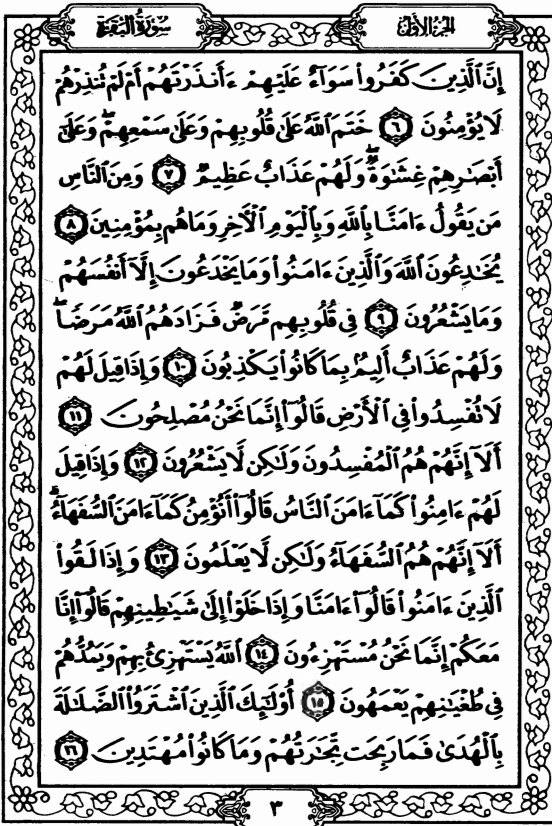 سُورَةُ البَقَرَةِ
الجُزْءُ الأَوَّلُ
إِنَّ ٱلَّذِينَ كَفَرُوا۟ سَوَآءٌ عَلَيْهِمْ ءَأَنذَرْتَهُمْ أَمْ لَمْ تُنذِرْهُمْ
لَا يُؤْمِنُونَ ٦ خَتَمَ ٱللَّهُ عَلَىٰ قُلُوبِهِمْ وَعَلَىٰ سَمْعِهِمْ ۖ وَعَلَىٰٓ
أَبْصَـٰرِهِمْ غِشَـٰوَةٌ ۖ وَلَهُمْ عَذَابٌ عَظِيمٌ ٧ وَمِنَ ٱلنَّاسِ
مَن يَقُولُ ءَامَنَّا بِٱللَّهِ وَبِٱلْيَوْمِ ٱلْـَٔاخِرِ وَمَا هُم بِمُؤْمِنِينَ ٨
يُخَـٰدِعُونَ ٱللَّهَ وَٱلَّذِينَ ءَامَنُوا۟ وَمَا يَخْدَعُونَ إِلَّآ أَنفُسَهُمْ
وَمَا يَشْعُرُونَ ٩ فِى قُلُوبِهِم مَّرَضٌ فَزَادَهُمُ ٱللَّهُ مَرَضًا ۖ
وَلَهُمْ عَذَابٌ أَلِيمٌۢ بِمَا كَانُوا۟ يَكْذِبُونَ ١٠ وَإِذَا قِيلَ لَهُمْ
لَا تُفْسِدُوا۟ فِى ٱلْأَرْضِ قَالُوٓا۟ إِنَّمَا نَحْنُ مُصْلِحُونَ ١١
أَلَآ إِنَّهُمْ هُمُ ٱلْمُفْسِدُونَ وَلَـٰكِن لَّا يَشْعُرُونَ ١٢ وَإِذَا قِيلَ
لَهُمْ ءَامِنُوا۟ كَمَآ ءَامَنَ ٱلنَّاسُ قَالُوٓا۟ أَنُؤْمِنُ كَمَآ ءَامَنَ ٱلسُّفَهَآءُ ۗ
أَلَآ إِنَّهُمْ هُمُ ٱلسُّفَهَآءُ وَلَـٰكِن لَّا يَعْلَمُونَ ١٣ وَإِذَا لَقُوا۟
ٱلَّذِينَ ءَامَنُوا۟ قَالُوٓا۟ ءَامَنَّا وَإِذَا خَلَوْا۟ إِلَىٰ شَيَـٰطِينِهِمْ قَالُوٓا۟ إِنَّا
مَعَكُمْ إِنَّمَا نَحْنُ مُسْتَهْزِءُونَ ١٤ ٱللَّهُ يَسْتَهْزِئُ بِهِمْ وَيَمُدُّهُمْ
فِى طُغْيَـٰنِهِمْ يَعْمَهُونَ ١٥ أُو۟لَـٰٓئِكَ ٱلَّذِينَ ٱشْتَرَوُا۟ ٱلضَّلَـٰلَةَ
بِٱلْهُدَىٰ فَمَا رَبِحَت تِّجَـٰرَتُهُمْ وَمَا كَانُوا۟ مُهْتَدِينَ ١٦
٣